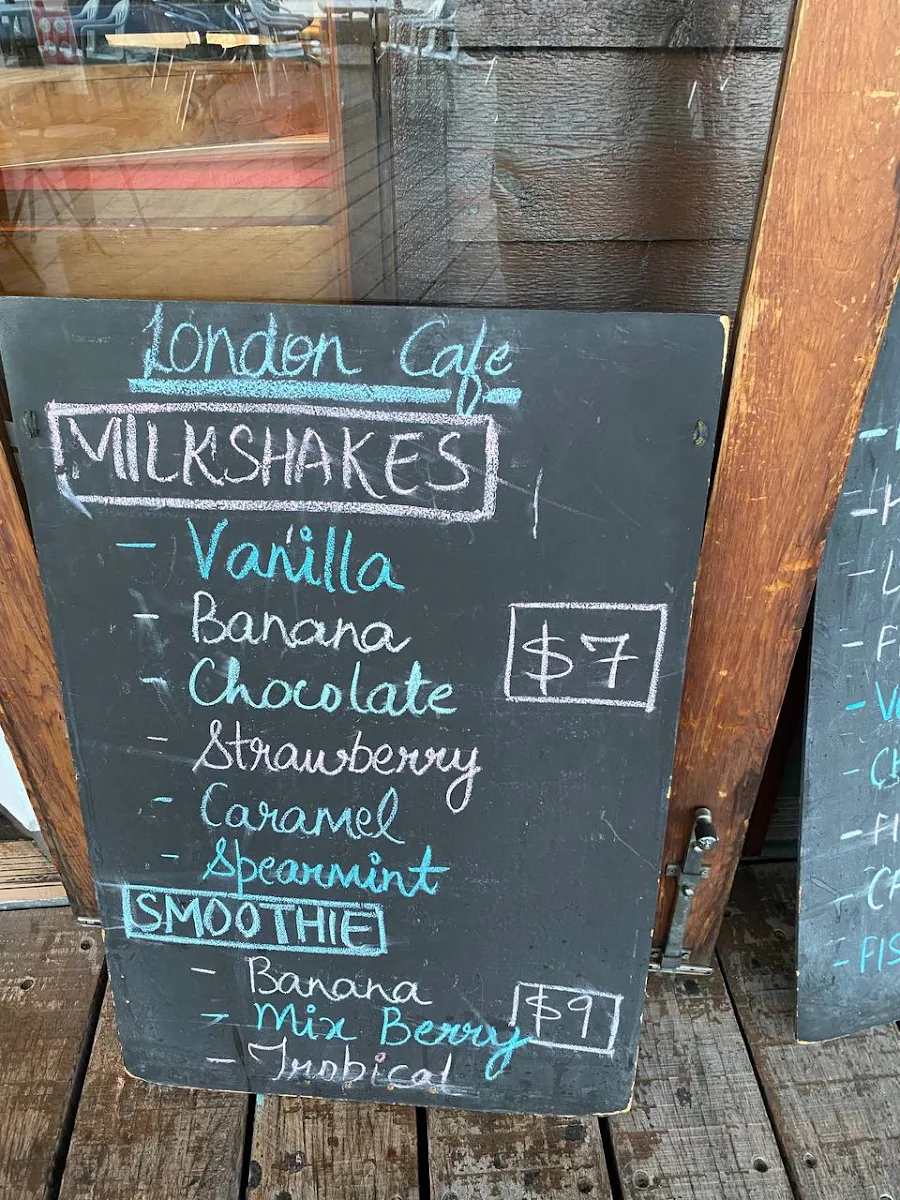 London Cafe
MILKSHAKES
- Vanilla
- Banana
- Chocolate
- Strawberry
- Caramel
- Spearmint
$7
SMOOTHIE
- Banana
- Mix Berry
- Tropical
$9